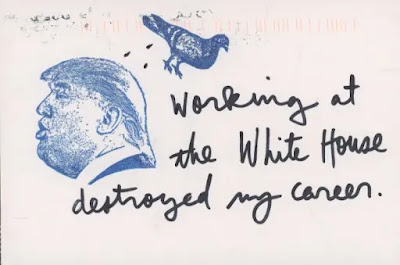 Working at
the White House
destroyed my career.